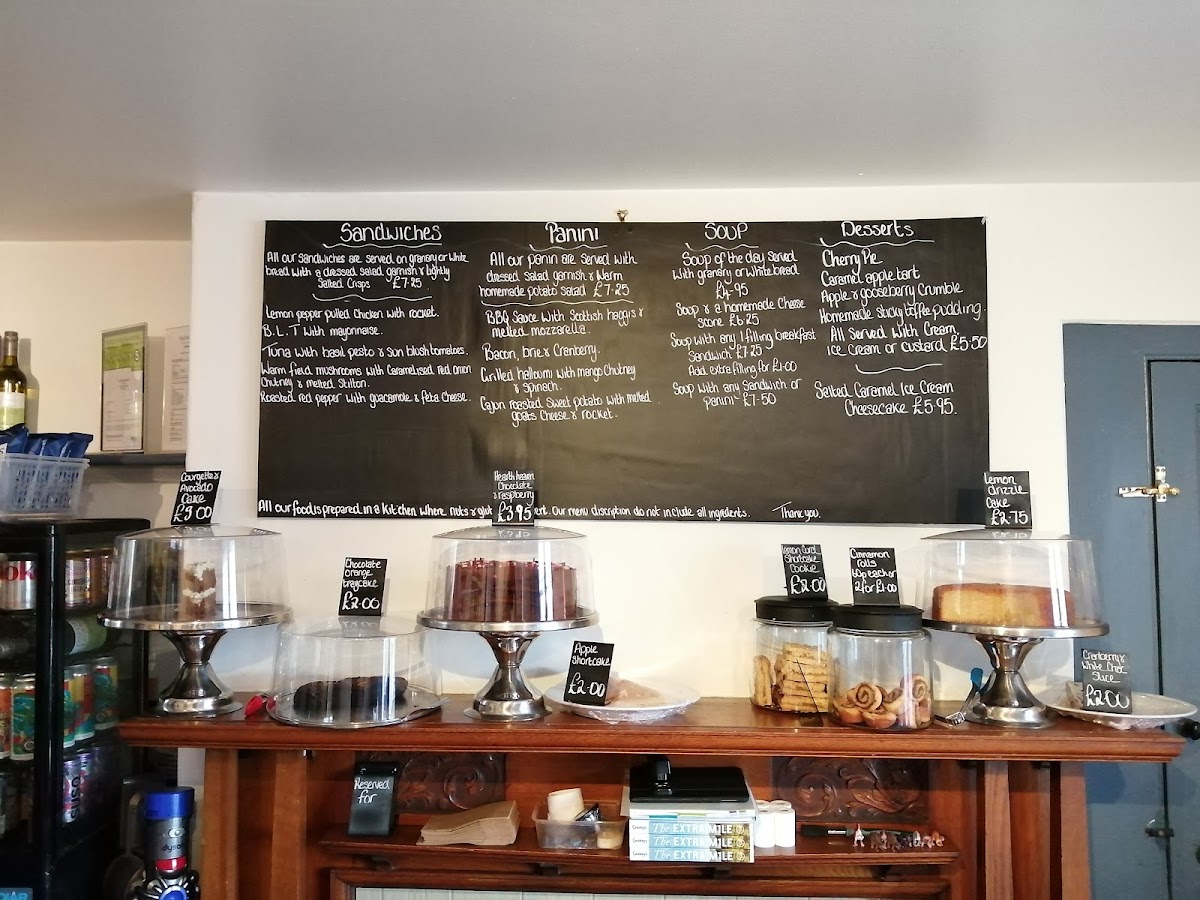 Sandwiches
All our sandwiches are served on granary or white
bread with a dressed salad garnish & lightly
Salted Crisps £7.25
Lemon pepper pulled chicken with rocket.
B.L.T with mayonnaise.
Tuna with basil pesto & sun blush tomatoes.
Warm field mushrooms with Caramelised red onion
Chutney & melted Stilton.
Roasted red pepper with guacamole & feta cheese.
Panini
All our panin are served with
dressed salad garnish & warm
homemade potato salad £7.25
BBQ Sauce with Scottish haggis &
melted mozzarella.
Bacon, brie & Cranberry.
Grilled halloumi with mango Chutney
& spinach.
Cajun roasted sweet potato with melted
goats cheese & rocket.
SOUP
Soup of the day served
with granary or white bread
£4.95
Soup & a homemade Cheese
scone £6.25
Soup with any 1 filling breakfast
Sandwich £7.25
Add extra filling for £1.00
Soup with any Sandwich or
panini £7.50
Desserts
Cherry Pie
Caramel apple tart
Apple & gooseberry Crumble
Homemade sticky toffee pudding.
All Served with Cream,
ice cream or custard £5.50
Salted Caramel Ice Cream
Cheesecake £5.95.
All our food is prepared in a Kitchen where nuts & glut ert. Our menu discription do not include all ingredients. Thank you.
Courgette &
Avocado
Cake
£3.00
Chocolate
orange
traycake
£2.00
Hearth heaven
Chocolate
& raspberry
£3.95
Apple
Shortcake
£2.00
Lemon Curd
Shortcake
Cookie
£2.00
Cinnamon
rolls
60p each or
2 for £1.00
Lemon
drizzle
Cake
£2.75
Cranberry &
White Choc
Slice
£2.00
Reserved
for
The EXTRA MILE
The EXTRA MILE
The EXTRA MILE
dyson
5